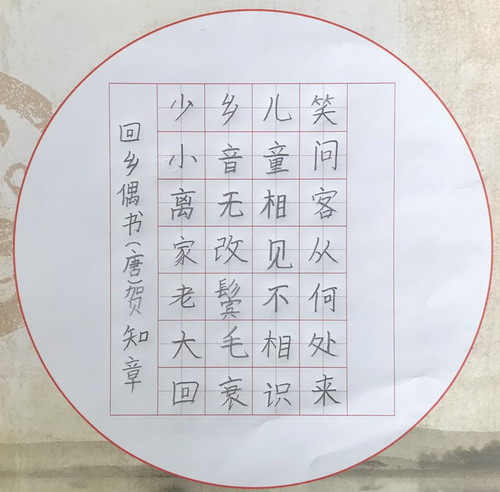 回乡偶书(唐)贺知章
少小离家老大回
乡音无改鬓毛衰
儿童相见不相识
笑问客从何处来